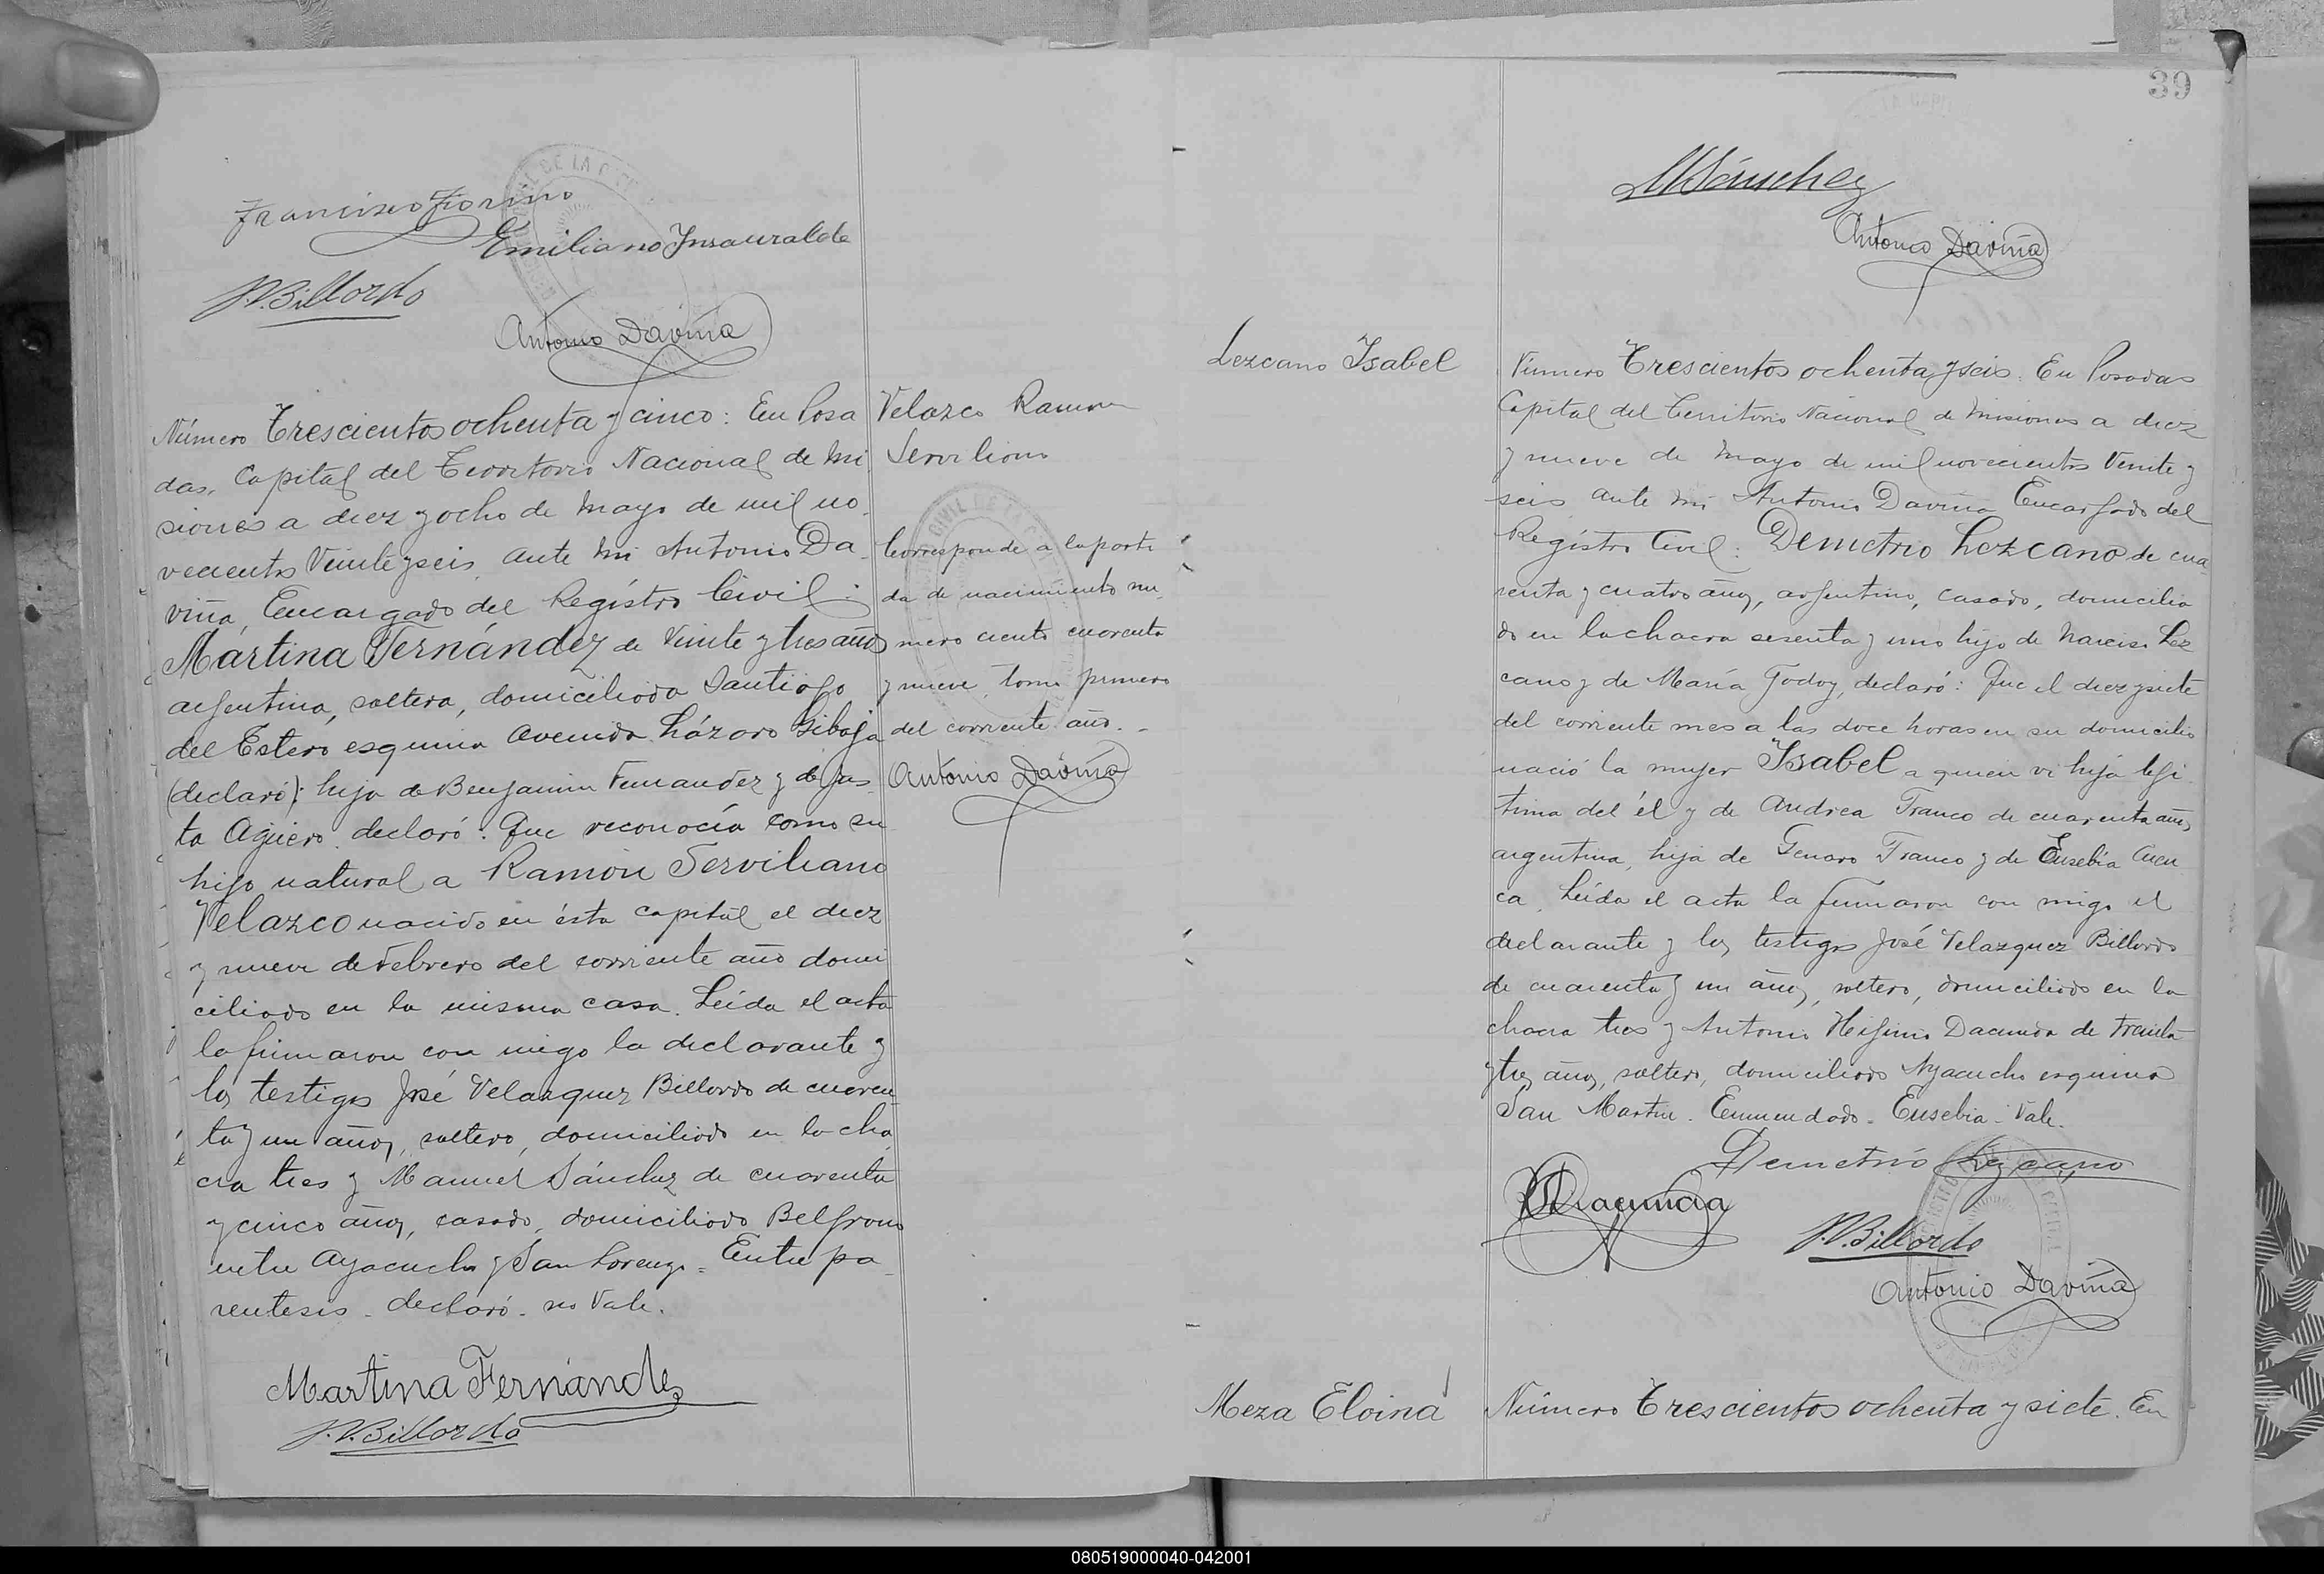 Francisco Fiorino
Emiliano Insauralde
J.V.Billordo
Antonio Daviña
Número Trescientos ochenta y cinco: En Posa
das, Capital del Territorio Nacional de Mi
siones a diez y ocho de Mayo de mil no
vecientos Veinte y seis, ante mi Antonio Da
viña, Encargado del Registro Civil:
Martina Fernández de Veinte y tres años
argentina, soltera, domiciliada Santiago
del Estero esquina Avenida Lázaro Gibaja
(declaró): hija de Benjamin Fernandez y de Jus
ta Agüero. declaró: Que reconocía como su
hijo natural a Ramón Serviliano
Velazco nacido en ésta capital el diez
y nueve de Febrero del corriente año domi
ciliado en la misma casa. Leída el acta
la firmaron con migo la declarante y
los testigos José Velazquez Billordo de cuaren
ta y un años, soltero, domiciliado en la cha
cra tres y Manuel Sánchez de cuarenta
y cinco años, casado, domiciliado Belgrano
entre Ayacucho y San Lorenzo = Entre pa
rentesis - declaró - no Vale.
Martina Fernández
J.V.Billordo
Velazco Ramon
Serviliano
Corresponde a la parti
da de nacimiento nu
mero ciento cuarenta
y nueve, tomo primero
del corriente año. -
Antonio Daviña
39
MSánchez
Antonio Daviña
Lezcano Isabel
Número Trescientos ochenta y seis: En Posadas
Capital del Territorio Nacional de Misiones a diez
y nueve de Mayo de mil novecientos Veinte y
seis ante mi Antonio Daviña Encargado del
Registro Civil: Demetrio Lezcano de cua
renta y cuatro años, argentino, casado, domicilia
do en la chacra sesenta y uno hijo de Narciso Lez
cano y de María Godoy, declaró: Que el diez y siete
del corriente mes a las doce horas en su domicilio
nació la mujer Isabel a quien vi hija legi
tima del él y de Andrea Franco de cuarenta años,
argentina, hija de Genaro Franco y de Eusebia Cuen
ca. Leída el acta la firmaron con migo el
declarante y los testigos José Velazquez Billordo
de cuarenta y un años, soltero, domiciliado en la
chacra tres y Antonio Higinio Dacunda de treinta
y tres años, soltero, domiciliado Ayacucho esquina
San Martin. Enmendado - Eusebia - Vale.
Demetrio Lezcano
J.V.Billordo
Antonio Daviña
Meza Eloina
Número Trescientos ochenta y siete. En
080519000040-042001